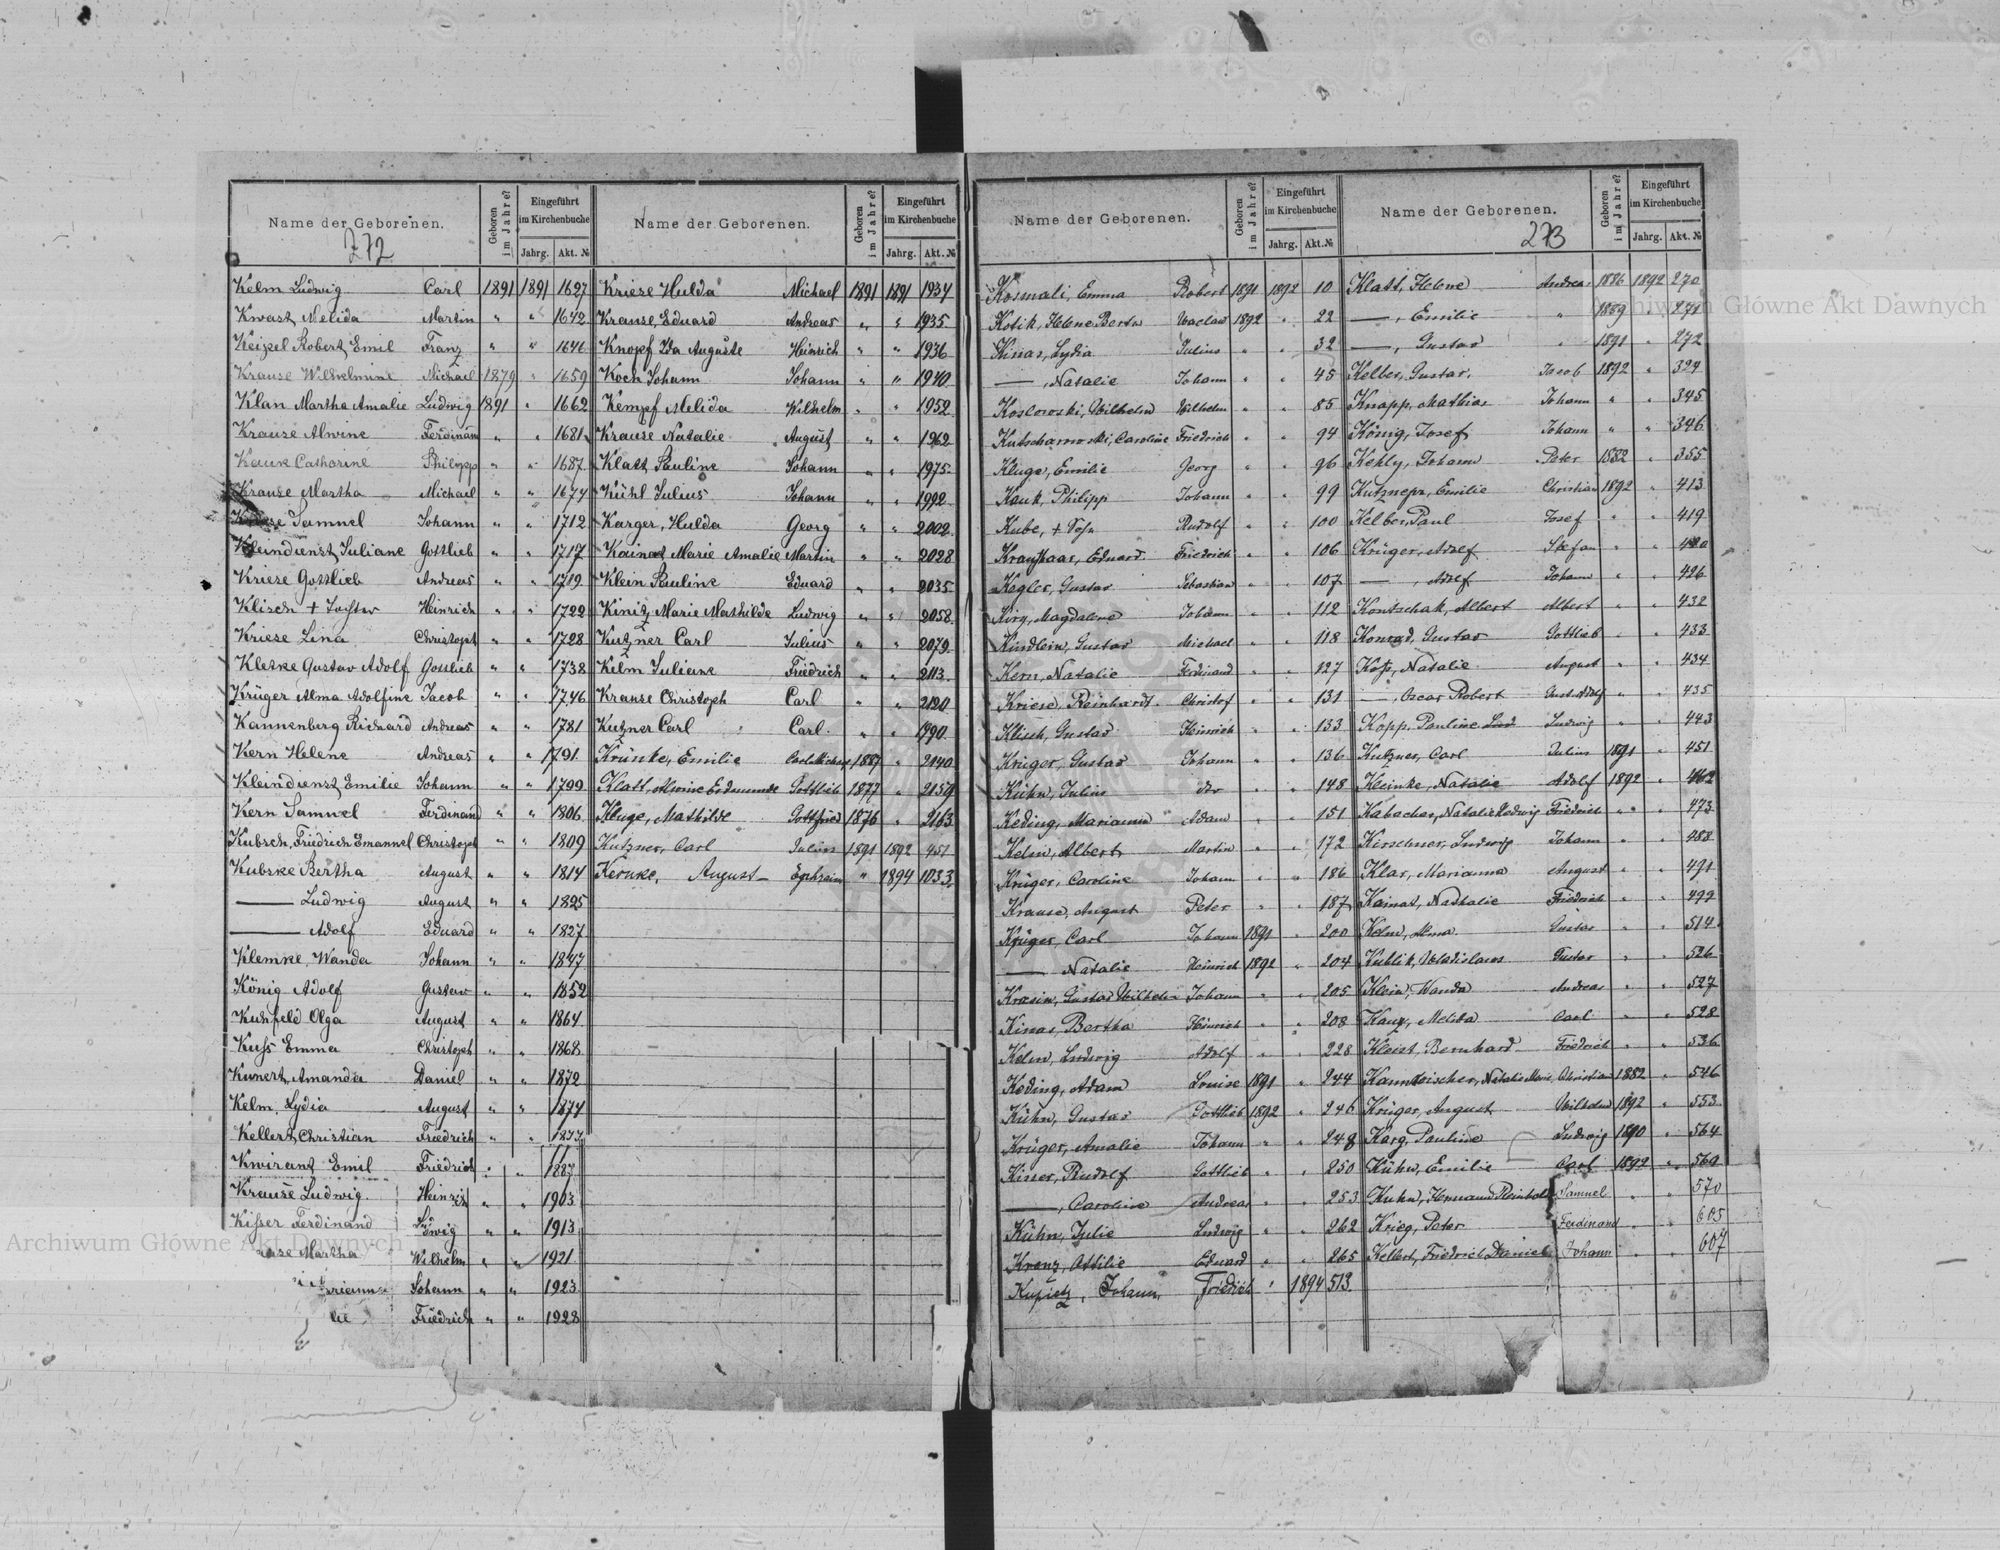 Name der Geborenen. Geboren im Jahre? Eingeführt im Kirchenbuche Jahrg. Akt. №
272
Kelm Ludwig Carl 1891 1891 1627
Kwast Melida Martin " " 1642
Keizel Robert Emil Franz " " 1646
Krause Wilhelmine Michael 1879 " 1659
Klan Martha Amalie Ludwig 1891 " 1662
Krause Alwine Ferdinand " " 1681
Catharine Philipp " " 1687
Krause Martha Michael " " 1674
Samuel Johann " " 1712
Kleindienst Juliane Gottlieb " " 1717
Kriese Gottlieb Andreas " " 1719
Klisch + Tochter Heinrich " " 1722
Kriese Lina Christoph " " 1728
Kletke Gustav Adolf Gottlieb " " 1738
Krüger Alma Adolfine Jacob " " 1746
Kannenberg Richard Andreas " " 1781
Kern Helene Andreas " " 1791
Kleindienst Emilie Johann " " 1799
Kern Samuel Ferdinand " " 1806
Kubsch, Friedrich Emanuel Christoph " " 1809
Kubske Bertha August " " 1814
— Ludwig August " " 1825
— Adolf Eduard " " 1827
Klemke, Wanda Johann " " 1847
König Adolf Gustav " " 1852
Kuhfeld Olga August " " 1864
Kuss Emma Christoph " " 1868
Kunert, Amanda Daniel " " 1872
Kelm, Lydia August " " 1874
Kellert, Christian Friedrich " " 1877
Kwirant Emil Friedrich " " 1887
Krause Ludwig Heinrich " " 1903
Kisser Ferdinand Ludwig " " 1913
Martha Wilhelm " " 1921
Johann " " 1923
Friedrich " " 1928
Name der Geborenen. Geboren im Jahre? Eingeführt im Kirchenbuche Jahrg. Akt. №
Kriese Hulda Michael 1891 1891 1934
Krause, Eduard Andreas " " 1935
Knopf Ida Auguste Heinrich " " 1936
Koch Johann Johann " " 1940
Kempf Melida Wilhelm " " 1952
Krause Natalie August " " 1962
Klatt Pauline Johann " " 1975
Kühl Julius Johann " " 1992
Karger, Hulda Georg " " 2002
Kainat Marie Amalie Martin " " 2028
Klein Pauline Eduard " " 2035
Kinitz Marie Mathilde Ludwig " " 2058
Kutzner Carl Julius " " 2079
Kelm Juliane Friedrich " " 2113
Krause Christoph Carl " " 2120
Kutzner Carl Carl " " 1990
Krünke, Emilie 1887 " 2140
Klatt, Gottlieb 1877 " 2159
Kluge, Mathilde Gottfried 1876 " 2163
Kutzner, Carl Julius 1891 1892 451
Kernke, August Ephraim " 1894 1033
Name der Geborenen. Geboren im Jahre? Eingeführt im Kirchenbuche Jahrg. Akt. №
Kosmali, Emma Robert 1891 1892 10
Kotik, Helene Berta Waclaw 1892 " 22
Kinas, Lydia Julius " " 32
—, Natalie Johann " " 45
Koslowski, Wilhelm Wilhelm " " 85
Kutscharowski, Caroline Friedrich " " 94
Kluge, Emilie Georg " " 96
Kauk, Philipp Johann " " 99
Kube, + Sohn Rudolf " " 100
Kraushaar, Eduard Friedrich " " 106
Kegler, Gustav Sebastian " " 107
Kirg, Magdalene Johann " " 112
Kindlein, Gustav Michael " " 118
Kern, Natalie Ferdinand " " 127
Kriese, Reinhardt Christof " " 131
Klisch, Gustav Heinrich " " 133
Krüger, Gustav Johann " " 136
Kühn, Julius " " 148
Keding, Marianna Adam " " 151
Kelm, Albert Martin " " 172
Krüger, Caroline Johann " " 186
Krause, August Peter " " 187
Krüger, Carl Johann 1891 " 200
— Natalie Heinrich 1892 " 204
Krasin, Gustav Wilhelm Johann " " 205
Kinas, Bertha Heinrich " " 208
Kelm, Ludwig Adolf " " 228
Keding, Adam Louise 1891 " 244
Kühn, Gustav Gottlieb 1892 " 246
Krüger, Amalie Johann " " 248
Kisser, Rudolf Gottlieb " " 250
—, Caroline Andreas " " 253
Kühn, Julie Ludwig " " 262
Krenz, Ottilie Eduard " " 265
Kupietz, Johann Friedrich " 1894 513
Name der Geborenen. Geboren im Jahre? Eingeführt im Kirchenbuche Jahrg. Akt. №
273
Klatt, Helene Andreas 1886 1892 270
—, Emilie " 1889 " 271
—, Gustav " 1891 " 272
Kelber, Gustav Jacob 1892 " 324
Knapp, Mathias Johann " " 345
König, Josef Johann " " 346
Kehly, Johann Peter 1882 " 355
Emilie Christian 1892 " 413
Kelber, Paul Josef " " 419
Krüger, Adolf Stefan " " 420
—, Adolf Johann " " 426
Kontschak, Albert Albert " " 432
Konrad, Gustav Gottlieb " " 433
Natalie August " " 434
—, Oscar Robert " " 435
Kopp, Pauline Ludwig " " 443
Kutzner, Carl Julius 1891 " 451
Kleinke, Natalie Adolf 1892 " 462
Kabacher, Natalie Hedwig Friedrich " " 473
Kirschner, Ludwig Johann " " 488
Klar, Marianna August " " 491
Kainat, Nathalie Friedrich " " 499
Kelm, Alma Gustav " " 514
Kublik, Wladislaus Gustav " " 526
Klein, Wanda Andreas " " 527
Melida Carl " " 528
Kleist, Bernhard Friedrich " " 536
Natalie Marie Christian 1882 " 546
Krüger, August Wilhelm 1892 " 553
Karg, Pauline Ludwig 1890 " 564
Kühn, Emilie Carl 1892 " 569
Kuhn, Hermann Reinhold Samuel " " 570
Krieg, Peter Ferdinand " " 605
Kellert, Friedrich Daniel Johann " " 607
Archiwum Główne Akt Dawnych
Archiwum Główne Akt Dawnych